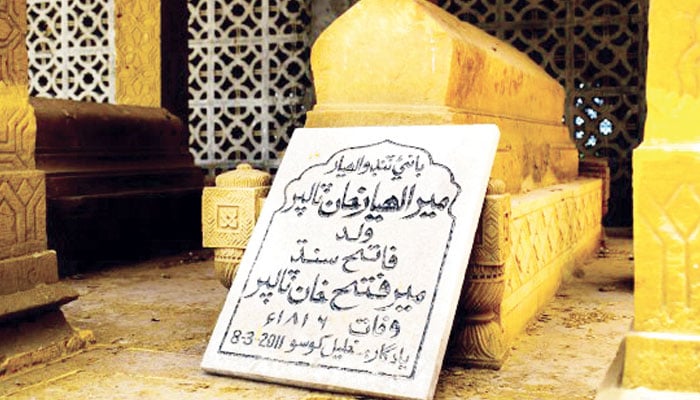 بانيءَ ٽنڊوالهيار
مير الهيار خان ٽالپر
ولد
فاتح سنڌ
مير فتح خان ٽالپر
وفات ۱۸۱۶ء
يادگار: خليل کوسو 8-3-2011